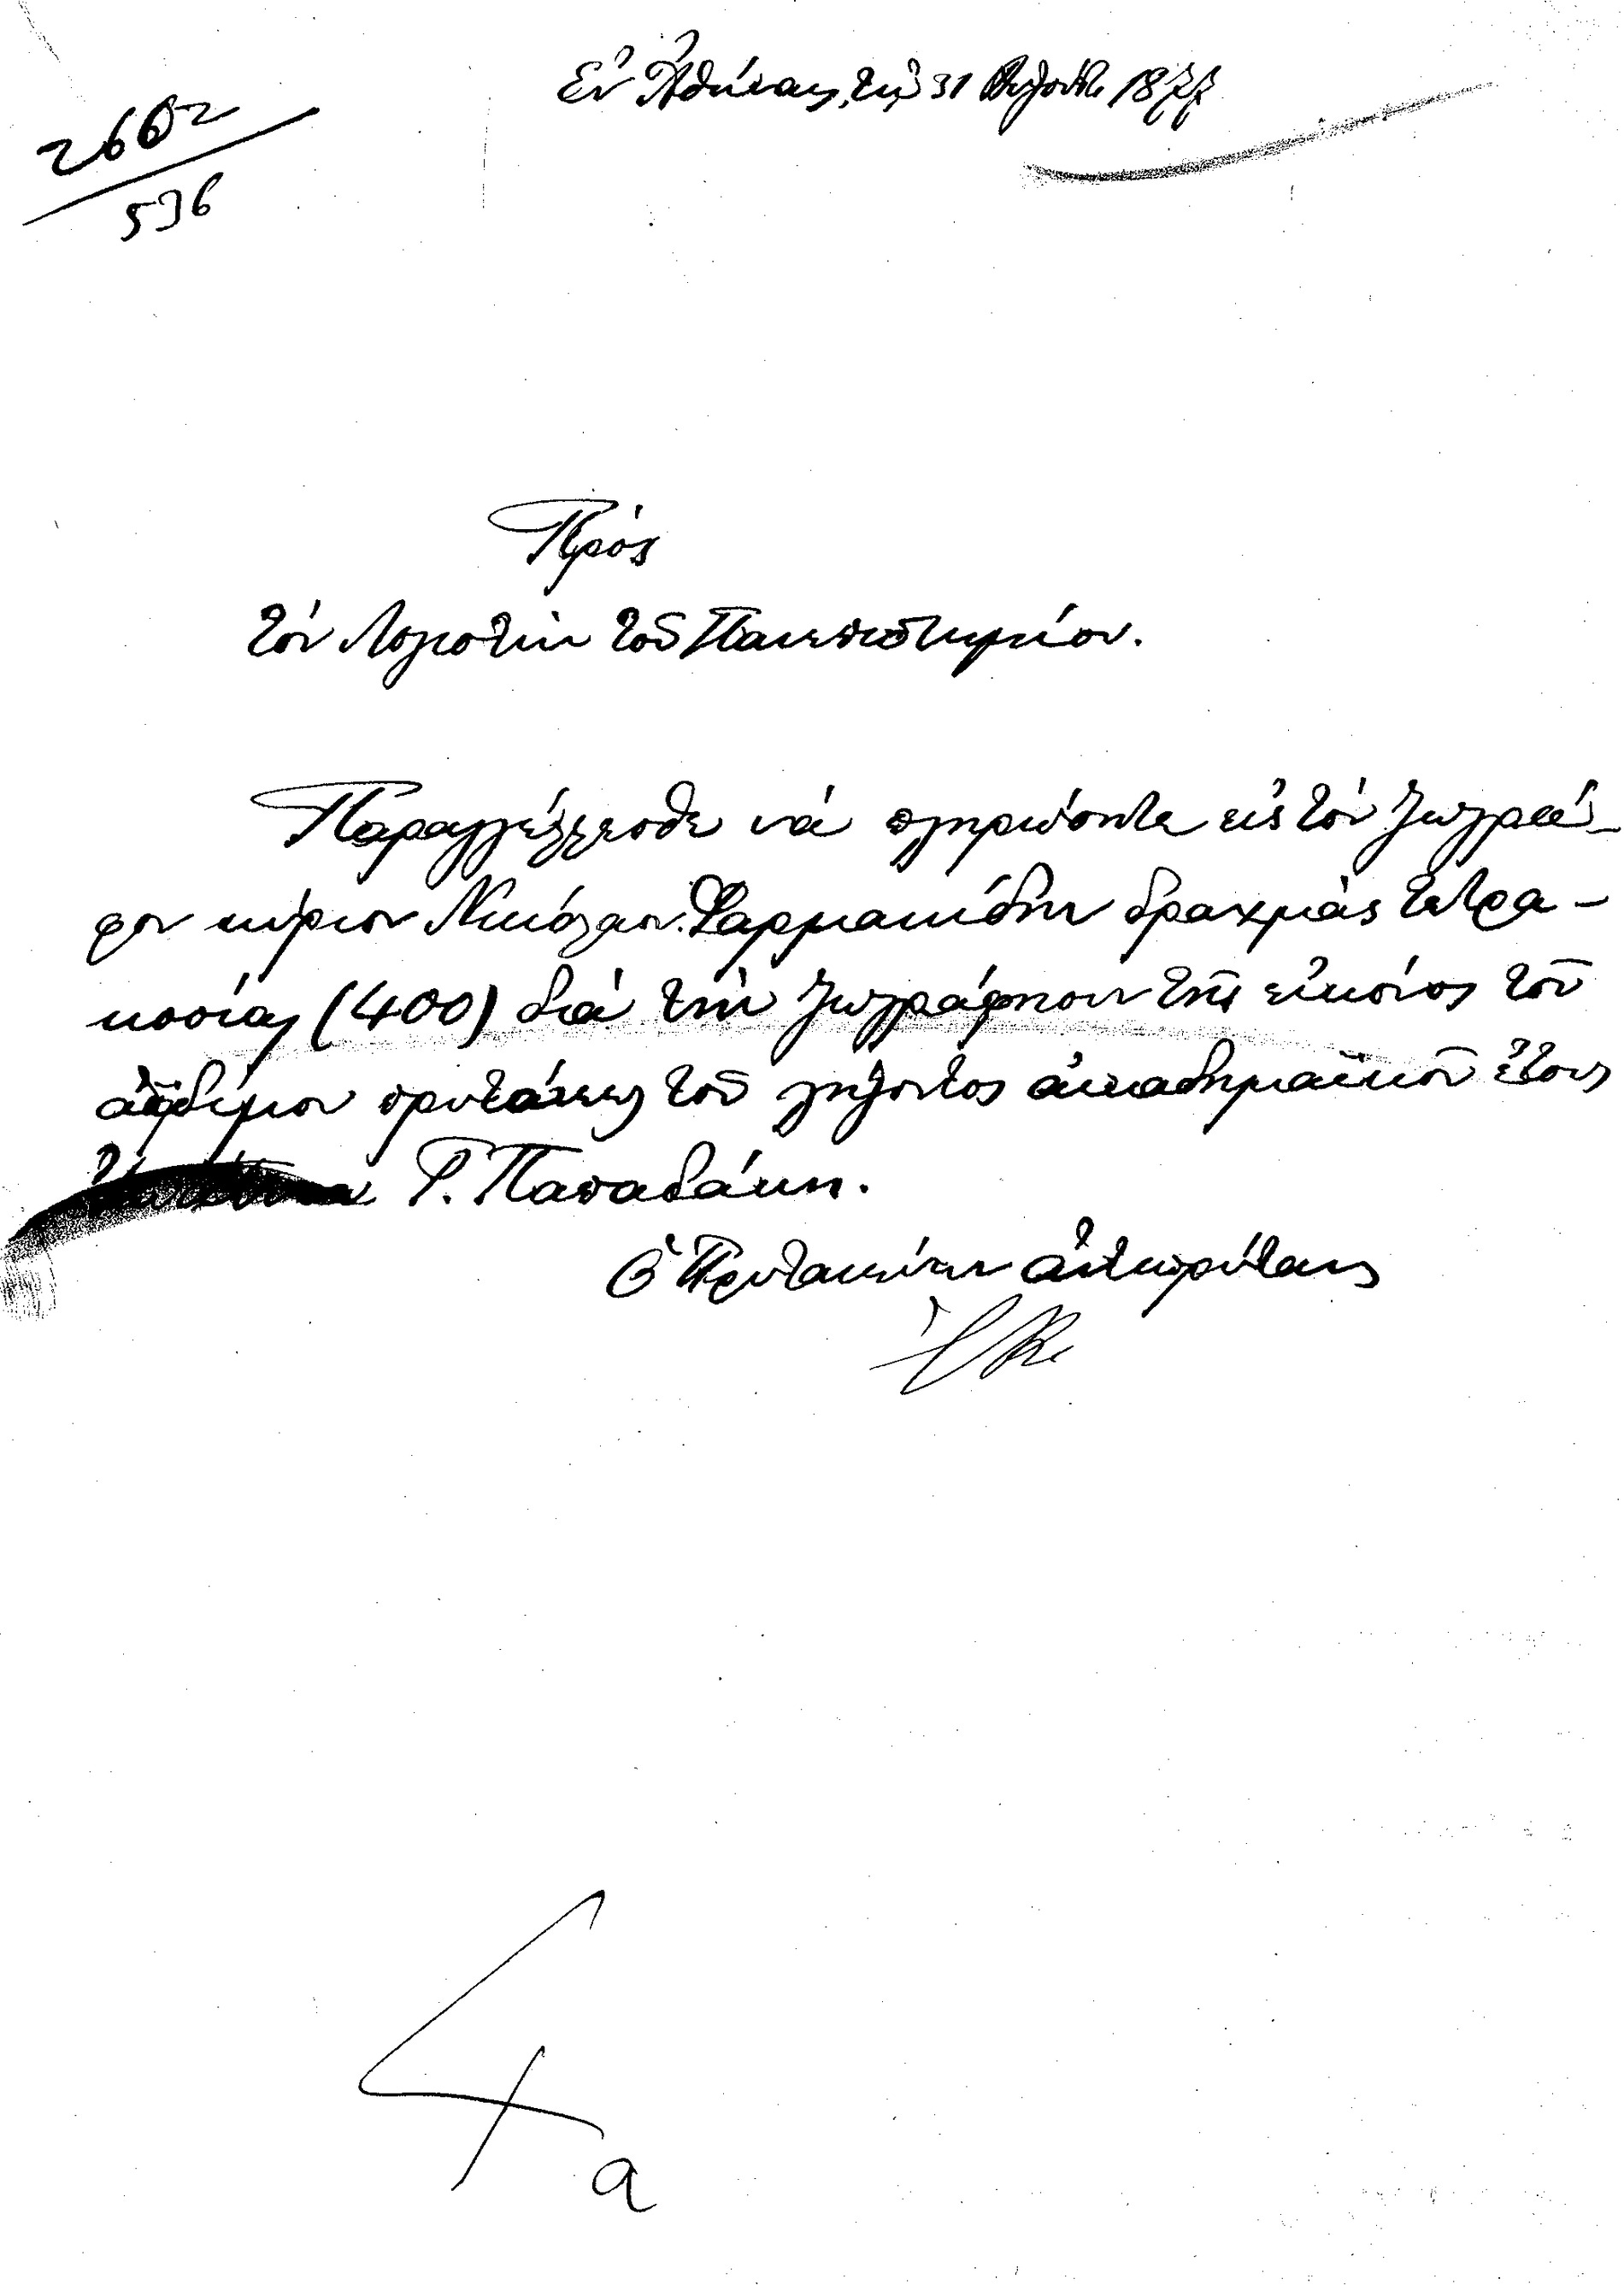 2602
536
Ἐν Ἀθήναις τῇ 31 1877
Πρὸς
τὸν Λογιστὴν τοῦ Πανεπιστημίου.
Παραγγέλλεσθε νὰ πληρώσητε εἰς τὸν ζωγρά-
φον κύριον Νικόλαον Φαρμακίδην δραχμὰς τετρα-
κοσίας (400) διὰ τὴν ζωγράφησιν τῆς εἰκόνος τοῦ
ἀοιδίμου πρυτάνεως τοῦ λήξαντος ἀκαδημαϊκοῦ ἔτους
Ῥ. Παπαδάκη.
Ὁ Πρυτανεύων ἀντιπρύτανις
4
a